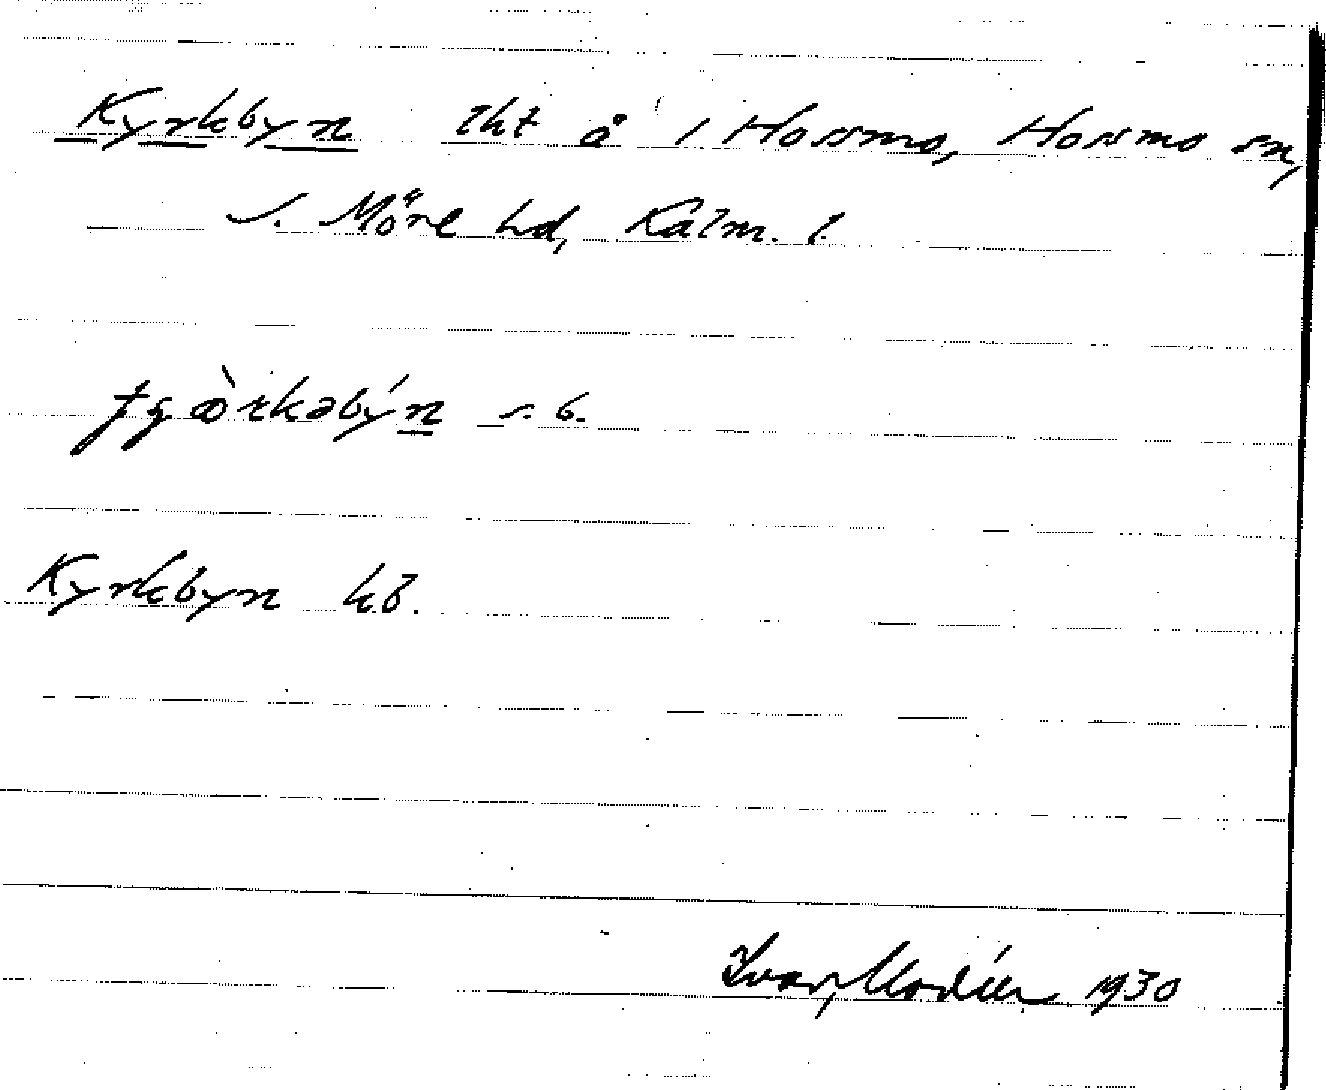 Kyrkbyn lht å i Hossmo, Hossmo sn,
S. Möre hd, Kalm. l.
kyrkbyn s. b.
Kyrkbyn kb.
Ivar Modéer 1930